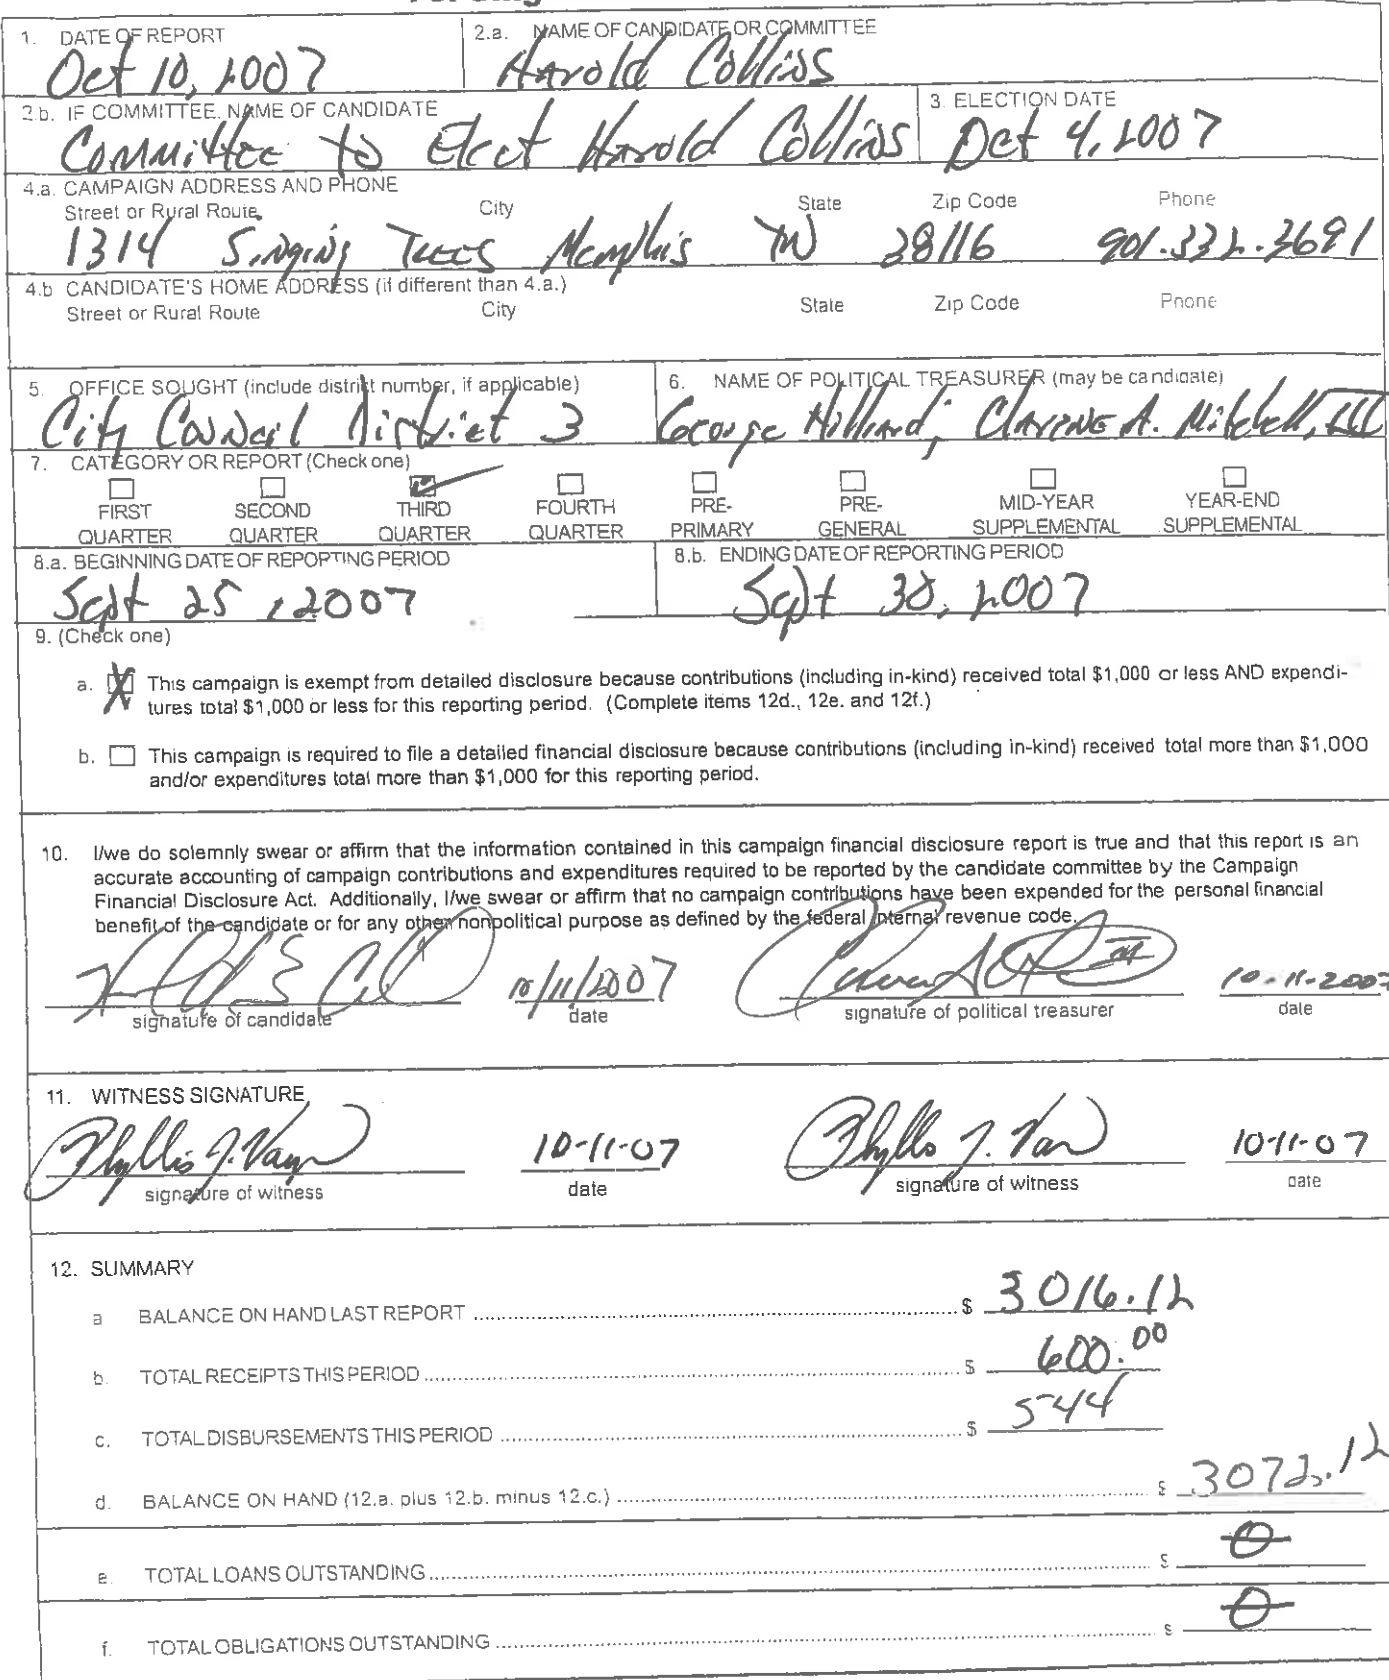 1. DATE OF REPORT
Oct 10, 2007
2.a. NAME OF CANDIDATE OR COMMITTEE
Harold Collins
2.b. IF COMMITTEE, NAME OF CANDIDATE
Committee to Elect Harold Collins
3. ELECTION DATE
Oct 4, 2007
4.a. CAMPAIGN ADDRESS AND PHONE
Street or Rural Route City State Zip Code Phone
1314 Singing Trees Memphis TN 38116 901.332.3691
4.b CANDIDATE'S HOME ADDRESS (if different than 4.a.)
Street or Rural Route City State Zip Code Phone
5. OFFICE SOUGHT (include district number, if applicable)
City Council District 3
6. NAME OF POLITICAL TREASURER (may be candidate)
George Hilliard; Clarene A. Mitchell, III
7. CATEGORY OR REPORT (Check one)
FIRST QUARTER
SECOND QUARTER
THIRD QUARTER
FOURTH QUARTER
PRE-PRIMARY
PRE-GENERAL
MID-YEAR SUPPLEMENTAL
YEAR-END SUPPLEMENTAL
8.a. BEGINNING DATE OF REPORTING PERIOD
Sept 25, 2007
8.b. ENDING DATE OF REPORTING PERIOD
Sept 30, 2007
9. (Check one)
a. X This campaign is exempt from detailed disclosure because contributions (including in-kind) received total $1,000 or less AND expendi-
tures total $1,000 or less for this reporting period. (Complete items 12d., 12e. and 12f.)
b. This campaign is required to file a detailed financial disclosure because contributions (including in-kind) received total more than $1,000
and/or expenditures total more than $1,000 for this reporting period.
10. I/we do solemnly swear or affirm that the information contained in this campaign financial disclosure report is true and that this report is an
accurate accounting of campaign contributions and expenditures required to be reported by the candidate committee by the Campaign
Financial Disclosure Act. Additionally, I/we swear or affirm that no campaign contributions have been expended for the personal financial
benefit of the candidate or for any other nonpolitical purpose as defined by the federal internal revenue code.
10/11/2007 10-11-2007
signature of candidate date signature of political treasurer date
11. WITNESS SIGNATURE
Phyllis J. 10-11-07 Phyllis J. 10-11-07
signature of witness date signature of witness date
12. SUMMARY
a BALANCE ON HAND LAST REPORT $ 3016.12
b. TOTAL RECEIPTS THIS PERIOD $ 600.00
c. TOTAL DISBURSEMENTS THIS PERIOD $ 544
d. BALANCE ON HAND (12.a. plus 12.b. minus 12.c.) $ 3072.12
e. TOTAL LOANS OUTSTANDING $ 0
f. TOTAL OBLIGATIONS OUTSTANDING $ 0